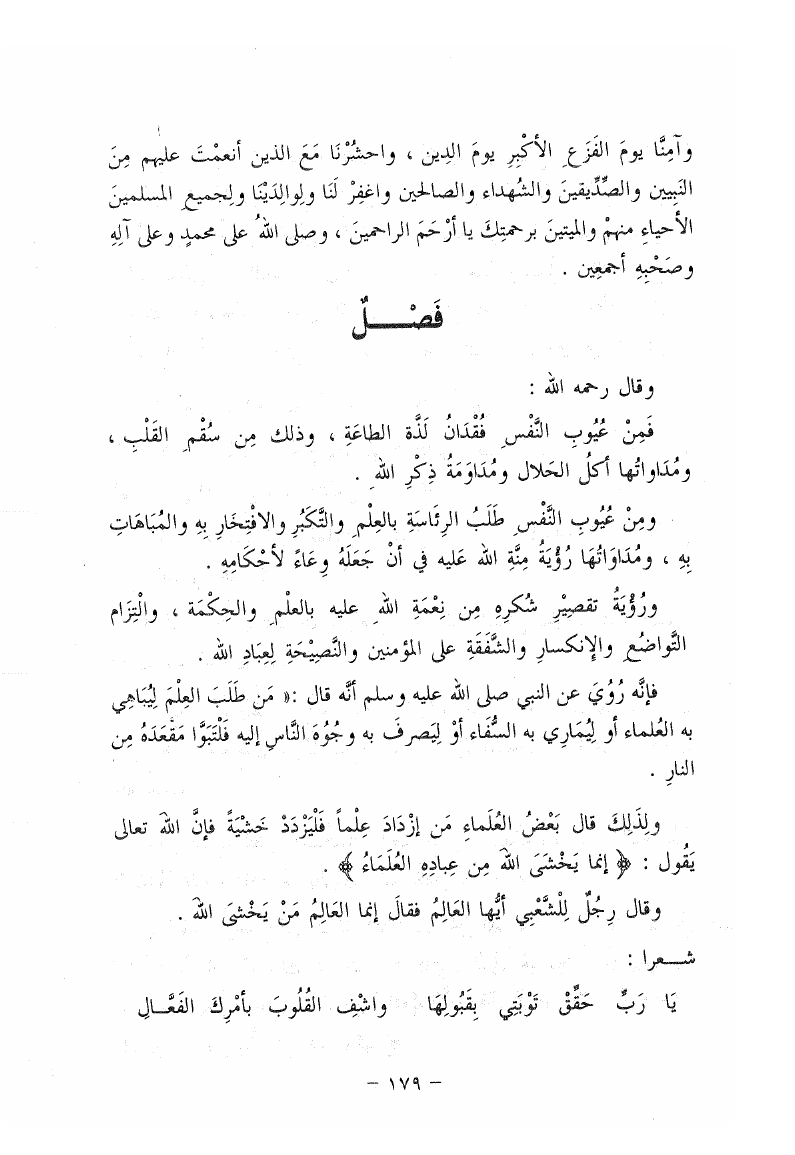 وآمِنَّا يومَ الفَزَعِ الأكْبرِ يومَ الدِين ، واحشُرْنَا مَعَ الذين أنعمْتَ عليهم مِنَ
النَبِيين والصِّدِّيقينَ والشُهداء والصالحين واغفِرْ لَنَا ولِوالِدَيْنَا ولِجميعِ المسلمينَ
الأحياءِ منهمْ والميتينَ برحمتِكَ يا أرْحَمَ الراحمينَ ، وصلى اللهُ على محمدٍ وعلى آلِهِ
وصَحْبِهِ أجمعِين .
فَصْـــــلٌ
وقال رحمه الله :
فَمِنْ عُيُوبِ النَّفْسِ فُقْدَانُ لَذَّةِ الطاعَةِ ، وذلك مِن سُقْمِ القَلْبِ ،
ومُدَاواتُها أكلُ الحَلال ومُدَاوَمَةُ ذِكْرِ اللهِ .
ومِنْ عُيُوبِ النَّفْسِ طَلَبُ الرِئَاسَةِ بالعِلْمِ والتَّكَبُرِ والافْتِخَارِ بِهِ والمُبَاهَاتِ
بِهِ ، ومُدَاوَاتُهَا رُؤْيَةُ مِنَّةِ الله عَليه في أنْ جَعَلَهُ وِعَاءً لأحْكامِهِ .
ورُؤْيَةُ تقصِيْرِ شُكرِهِ مِن نِعْمَةِ اللهِ عليه بالعلْمِ والحِكْمَة ، والْتِزَام
التَّواضُعِ والإنكسارِ والشَّفَقَةِ على المؤمنين والنَّصِيْحَةِ لِعِبَادِ الله .
فإنَّه رُوُيَ عن النبي صلى الله عليه وسلم أنَّه قال :« مَن طَلَبَ العِلْمَ لِيُبَاهِي
به العُلماء أو لِيُمَارِي به السُّفَاء أوْ لِيَصرفَ به وجُوُهَ النَّاسِ إليه فَلْتَبَوَّا مَقعَدَهُ مِن
النارِ .
ولِذَلِكَ قال بَعْضُ العُلَماءِ مَن إزْدَادَ عِلْماً فَلْيَزْدَدْ خَشْيَةً فإنَّ اللهَ تعالى
يَقُول : ﴿ إنما يَخْشَى اللهَ مِن عِبادِهِ العُلَمَاءُ ﴾ .
وقال رِجُلٌ لِلْشَّعْبِي أيُّها العَالِمُ فقالَ إنما العَالِمُ مَنْ يَخْشىَ اللهَ .
شـــعرا :
يَا رَبِّ حَقِّقْ تَوْبَتِي بِقَبُولِهَا    واشْفِ القُلُوبَ بأمْرِكَ الفَعَّــالِ
– ١٧٩ –